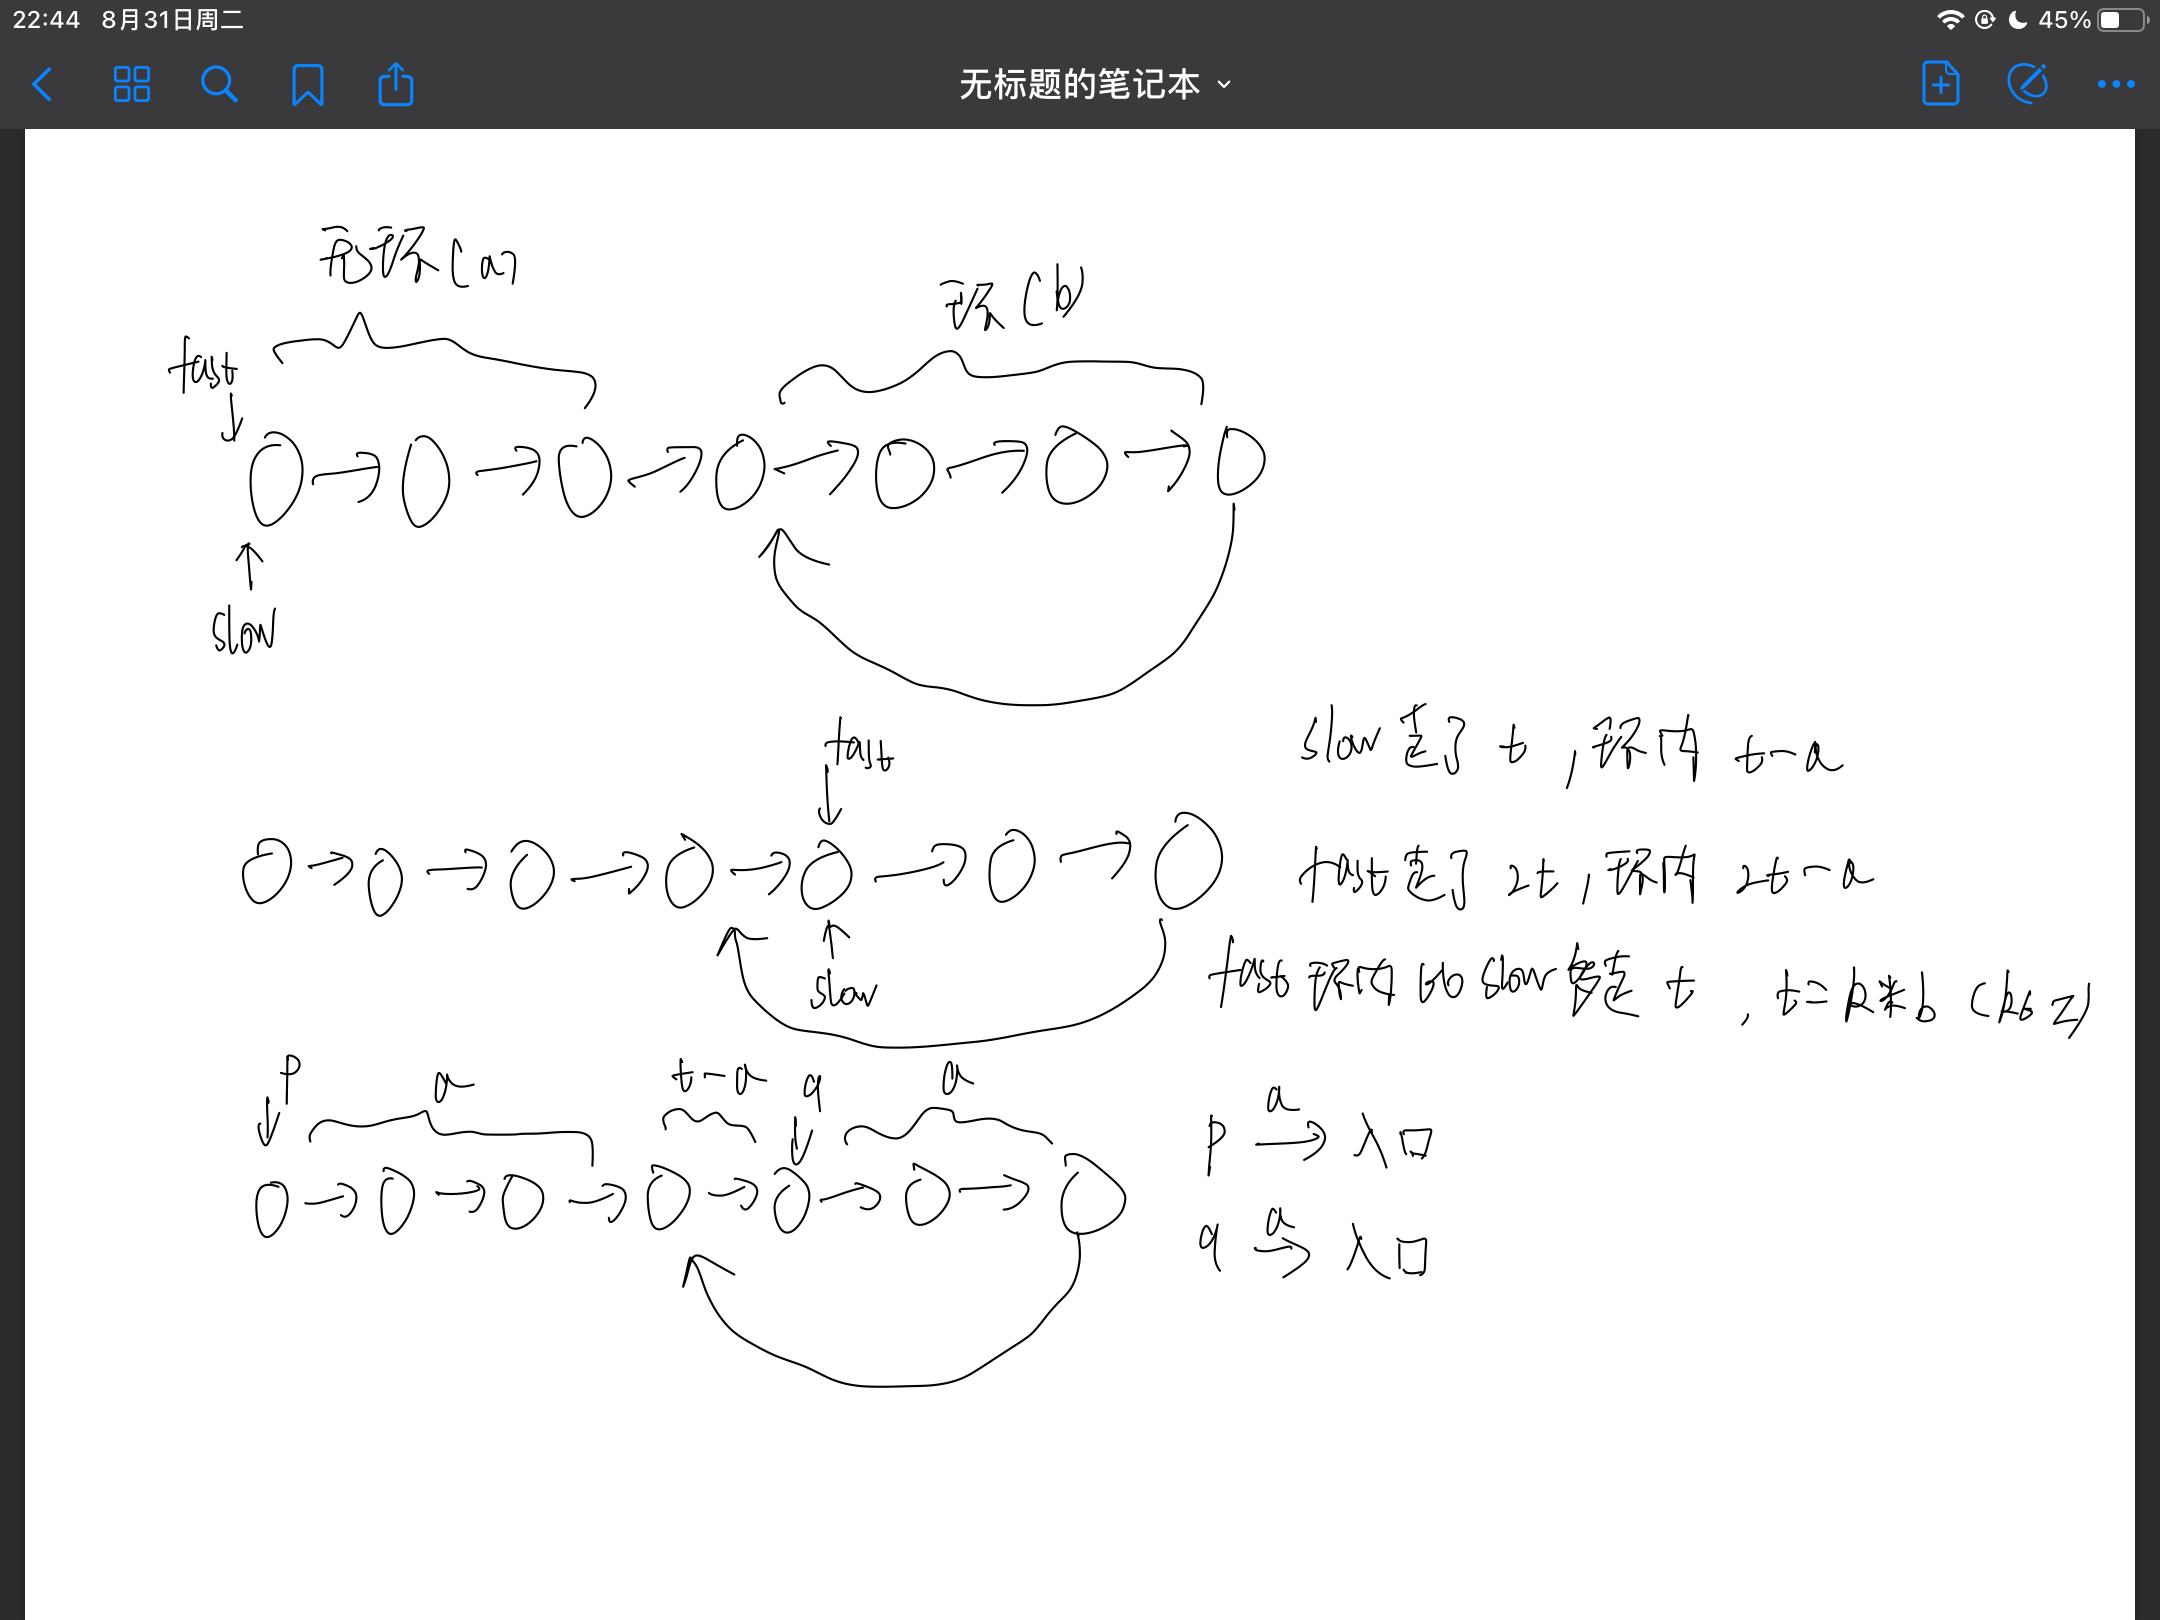 22:44 8月31日周二
45%
无标题的笔记本
无环(a)
环(b)
fast
slow
fast
slow走了 t,环内 t-a
fast走了 2t,环内 2t-a
slow
fast环内比slow多走 t,t=k*b (k∈Z)
p
a
t-a
q
a
p a→ 入口
q a→ 入口